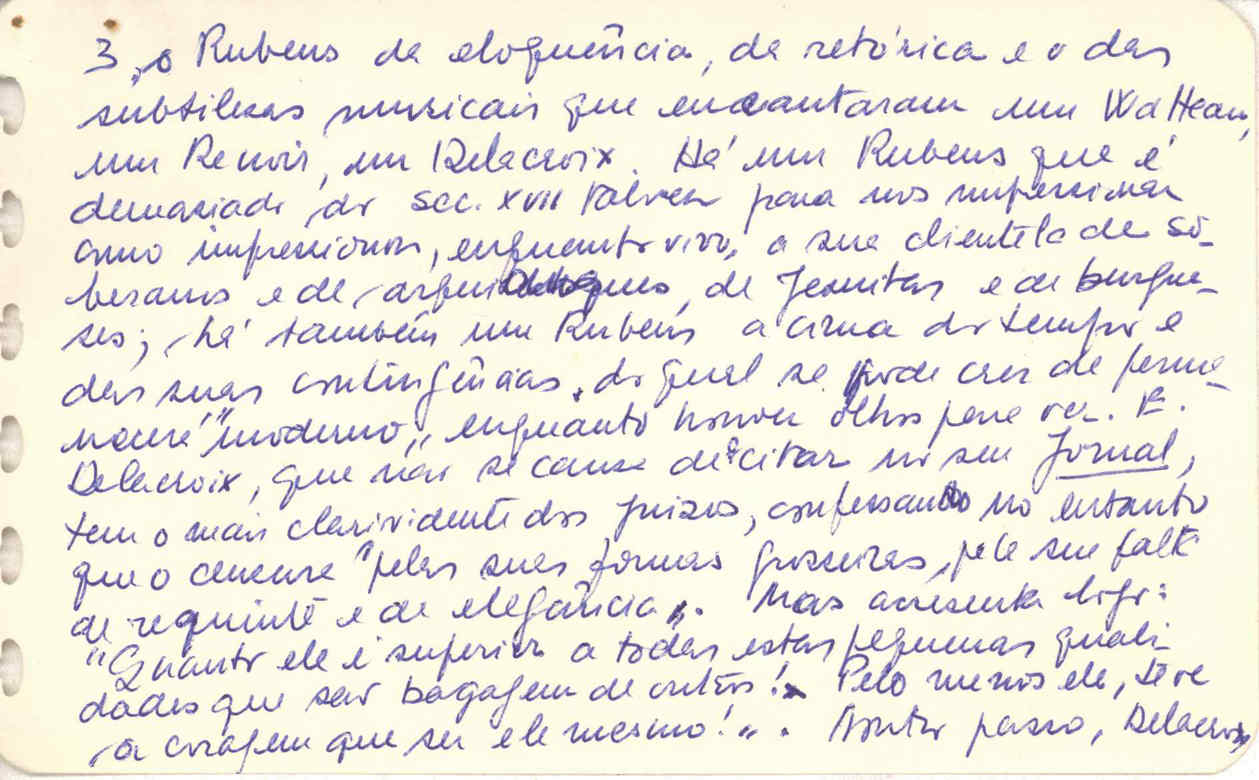 3, o Rubens da eloquência, da retórica e o das
subtilezas musicais que encantaram um Watteau,
um Renoir, um Delacroix. Há um Rubens que é
demasiado do séc. XVII talvez para nos impressionar
como impressionou, enquanto vivo, a sua clientela de so-
beranos e de arquiduques, de Jesuitas e de burgue-
ses; há também um Rubens acima do tempo e
das suas contingências, do qual se pode crer de perma-
necerá "moderno", enquanto houver olhos para ver. E.
Delacroix, que não se cansa de citar no seu Jornal,
tem o mais clarividente dos juizos, confessando no entanto
que o censura "pelas suas formas grosseiras, pela sua falta
de requinte e de elegância". Mas acrescenta logo:
"Quanto ele é superior a todas estas pequenas quali-
dades que são bagagem de outros! Pelo menos ele, teve
a coragem que ser ele mesmo!". Noutro passo, Delacroix